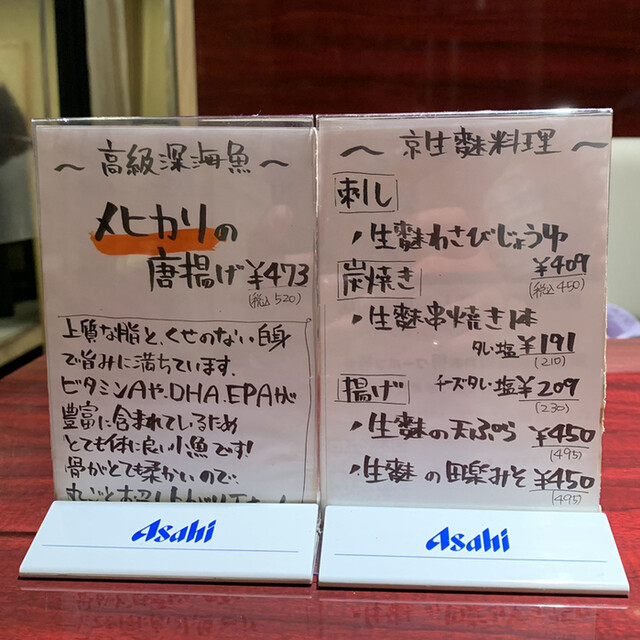 〜 高級深海魚 〜
メヒカリの
唐揚げ ¥473
(税込 520)
上質な脂と、くせのない白身
で旨みに満ちています.
ビタミンAや、DHA、EPAが
豊富に含まれているため
とても体に良い小魚です!
骨がとても柔かいので、
Asahi
〜 京生麩料理 〜
刺し
・生麩わさびじょうゆ
¥409
(税込 450)
炭焼き
・生麩串焼き1本
タレ・塩 ¥191
(210)
チーズタレ・塩 ¥209
(230)
揚げ
・生麩の天ぷら ¥450
(495)
・生麩の田楽みそ ¥450
(495)
Asahi